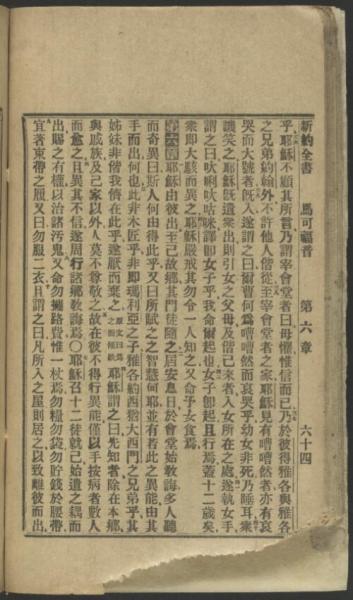 新約全書　馬可福音　第六章　六十四
乎耶穌不顧其所言乃謂宰會堂者曰毋懼惟信而已乃於彼得雅各與雅各
之兄弟約翰外不許他人偕從至宰會堂者之家耶穌見有嘈嘈然者亦有哀
哭而大號者既入遂謂之曰爾曹何爲嘈嘈然而哀哭乎幼女非死乃睡耳衆
譏笑之耶穌旣遣衆出則引女之父母及偕己來者入女所在之處遂執女手
謂之曰呔唎呔咕咪譯卽女子乎我命爾起也女子卽起且行焉蓋十二歲矣
衆卽大駭而異之耶穌嚴戒其勿令一人知之又命予女食焉
第六章耶穌由彼出至己故鄉其門徒隨之居安息日於會堂始敎誨多人聽
而奇異曰斯人何由得此乎又曰所賦之之智慧何耶並有若此之異能由其
手而出何也此非木匠乎非卽瑪利亞之子雅各約西猶大西門之兄弟乎其
姊妹非偕我儕在此乎遂厭而棄之耶穌謂之曰先知者除在本鄉
與戚族及己家以外人莫不尊敬之故在彼不得行異能僅以手按病者數人
而愈之且異其不信遂周行諸鄉敎誨焉〇耶穌召十二徒就己始遣之耦而
出賜之有權以治諸汚鬼又命勿攜路資惟一杖焉勿糧勿袋勿貯錢於腰帶
宜著束帶之履又曰勿服二衣且謂之曰凡所入之屋則居之以致離彼而出